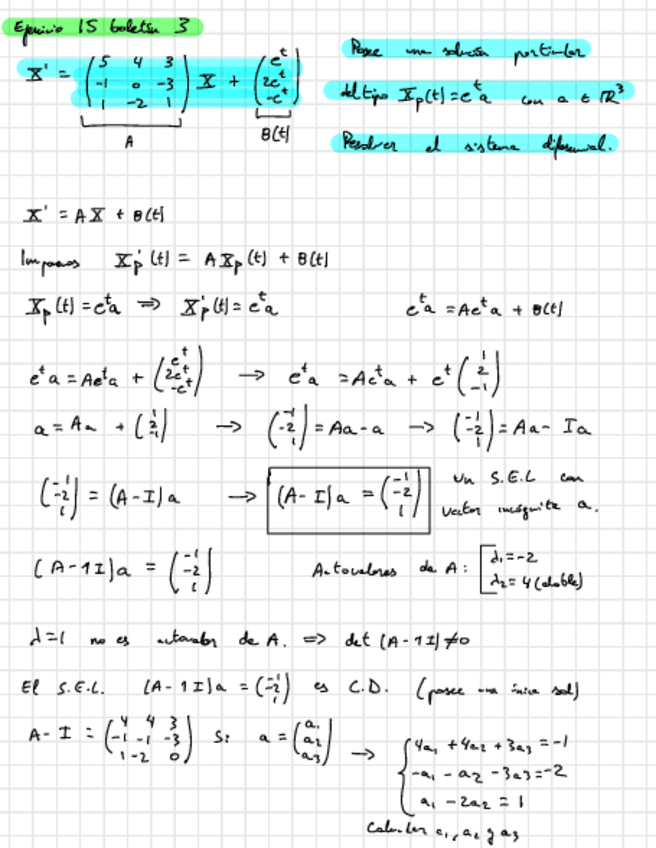 Ejercicio 15 boletín 3
X' = ( 5 4 3 ; -1 0 -3 ; 1 -2 1 ) X + ( e^t ; 2e^t ; -e^t )
A
B(t)
Posee una solución particular
del tipo X_p(t) = e^t a con a ∈ ℝ^3
Resolver el sistema diferencial.
X' = AX + B(t)
Imponemos X_p'(t) = A X_p(t) + B(t)
X_p(t) = e^t a ⟹ X_p'(t) = e^t a e^t a = A e^t a + B(t)
e^t a = A e^t a + ( e^t ; 2e^t ; -e^t ) → e^t a = A e^t a + e^t ( 1 ; 2 ; -1 )
a = Aa + ( 1 ; 2 ; -1 ) → ( -1 ; -2 ; 1 ) = Aa - a → ( -1 ; -2 ; 1 ) = Aa - Ia
( -1 ; -2 ; 1 ) = (A - I) a → (A - I) a = ( -1 ; -2 ; 1 )
Un S.E.L con
vector incógnita a.
(A - 1I) a = ( -1 ; -2 ; 1 ) Autovalores de A: [ λ₁ = -2
λ₂ = 4 (doble)
λ = 1 no es autovalor de A. ⟹ det (A - 1I) ≠ 0
El S.E.L. (A - 1I) a = ( -1 ; -2 ; 1 ) es C.D. (posee una única sol)
A - I = ( 4 4 3 ; -1 -1 -3 ; 1 -2 0 ) Si a = ( a₁ ; a₂ ; a₃ ) →
{ 4a₁ + 4a₂ + 3a₃ = -1
-a₁ - a₂ - 3a₃ = -2
a₁ - 2a₂ = 1
Calcular a₁, a₂ y a₃